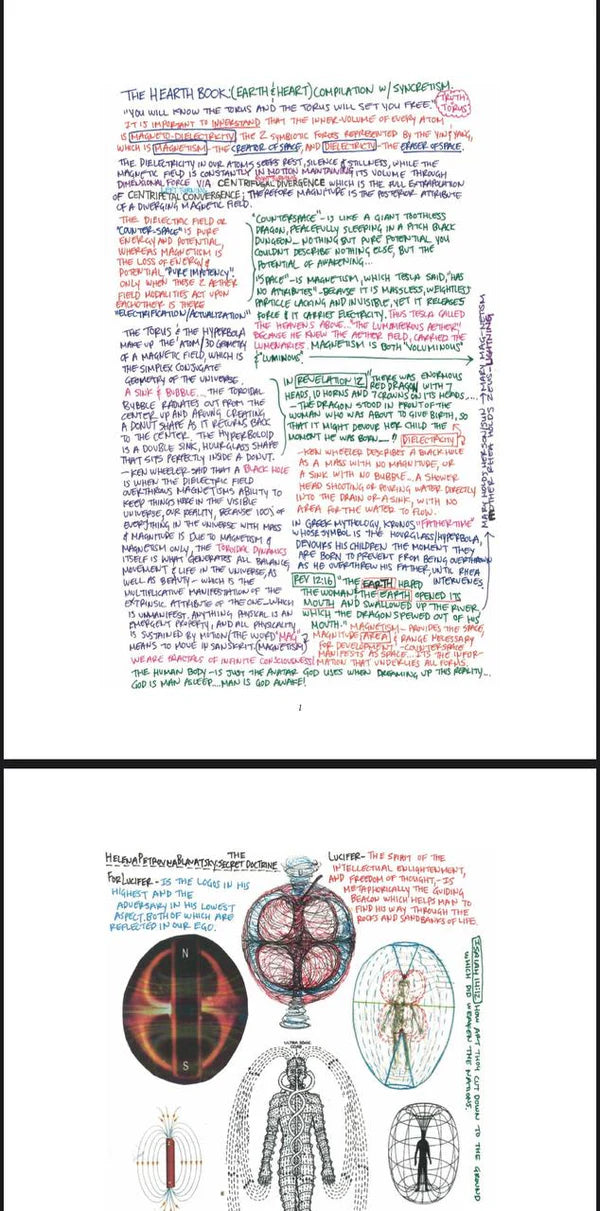 THE HEARTH BOOK: (EARTH & HEART) COMPILATION W/ SYNCRETISM.
"YOU WILL KNOW THE TORUS AND THE TORUS WILL SET YOU FREE."
TRUTH
TORUS
IT IS IMPORTANT TO INNERSTAND THAT THE INNER-VOLUME OF EVERY ATOM
IS MAGNETO-DIELECTRICITY. THE 2 SYMBIOTIC FORCES REPRESENTED BY THE YIN & YANG,
WHICH IS MAGNETISM - THE CREATOR OF SPACE, AND DIELECTRICITY - THE ERASER OF SPACE.
THE DIELECTRICITY IN OUR ATOMS SEEKS REST, SILENCE & STILLNESS, WHILE THE
MAGNETIC FIELD IS CONSTANTLY IN MOTION MAINTAINING ITS VOLUME THROUGH
DIMENSIONAL FORCE VIA CENTRIFUGAL DIVERGENCE WHICH IS THE FULL EXTRAPOLATION
OF CENTRIPETAL CONVERGENCE; THEREFORE MAGNITUDE IS THE POSTERIOR ATTRIBUTE
OF A DIVERGING MAGNETIC FIELD.
THE DIELECTRIC FIELD OR
"COUNTER-SPACE" IS PURE
ENERGY AND POTENTIAL,
WHEREAS MAGNETISM IS
THE LOSS OF ENERGY &
POTENTIAL, "PURE IMPOTENCY".
ONLY WHEN THESE 2 AETHER
FIELD MODALITIES ACT UPON
EACHOTHER IS THERE
"ELECTRIFICATION/ACTUALIZATION"
"COUNTERSPACE" - IS LIKE A GIANT TOOTHLESS
DRAGON, PEACEFULLY SLEEPING IN A PITCH BLACK
DUNGEON... NOTHING BUT PURE POTENTIAL YOU
COULDN'T DESCRIBE NOTHING ELSE, BUT THE
POTENTIAL OF AWAKENING...
"SPACE" - IS MAGNETISM, WHICH TESLA SAID, "HAS
NO ATTRIBUTES" - BECAUSE IT IS MASSLESS, WEIGHTLESS
PARTICLE LACKING AND INVISIBLE, YET IT RELEASES
FORCE & IT CARRIES ELECTRICITY. THUS TESLA CALLED
THE HEAVENS ABOVE... "THE LUMINIFEROUS AETHER"
BECAUSE HE KNEW THE AETHER FIELD, CARRIED THE
LUMINARIES. MAGNETISM IS BOTH "VOLUMINOUS"
& "LUMINOUS"
THE TORUS & THE HYPERBOLA
MAKE UP THE ATOM / 3D GEOMETRY
OF A MAGNETIC FIELD, WHICH IS
THE SIMPLEX CONJUGATE
GEOMETRY OF THE UNIVERSE.
A SINK & BUBBLE... THE TOROIDAL
BUBBLE RADIATES OUT FROM THE
CENTER UP AND AROUND CREATING
A DONUT SHAPE AS IT RETURNS BACK
TO THE CENTER. THE HYPERBOLOID
IS A DOUBLE SINK, HOURGLASS SHAPE
THAT SITS PERFECTLY INSIDE A DONUT.
- KEN WHEELER SAID THAT A BLACK HOLE
IS WHEN THE DIELECTRIC FIELD
OVERTHROWS MAGNETISMS ABILITY TO
KEEP THINGS HERE IN THE VISIBLE
UNIVERSE, OUR REALITY, BECAUSE 100% OF
EVERYTHING IN THE UNIVERSE WITH MASS
& MAGNITUDE IS DUE TO MAGNETISM &
MAGNETISM ONLY, THE TOROIDAL DYNAMICS
ITSELF IS WHAT GENERATES ALL BALANCE,
MOVEMENT & LIFE IN THE UNIVERSE, AS
WELL AS BEAUTY - WHICH IS THE
MULTIPLICATIVE MANIFESTATION OF THE
EXTRINSIC ATTRIBUTE OF THE ONE - WHICH
IS UNMANIFEST. ANYTHING PHYSICAL IS AN
EMERGENT PROPERTY, AND ALL PHYSICALITY
IS SUSTAINED BY MOTION (THE WORD "MAG"
MEANS TO MOVE IN SANSKRIT. (MAGNETISM)
WE ARE FRACTALS OF INFINITE CONSCIOUSNESS!
IN REVELATION 12, "THERE WAS ENORMOUS
RED DRAGON WITH 7
HEADS, 10 HORNS AND 7 CROWNS ON ITS HEADS....
- THE DRAGON STOOD IN FRONT OF THE
WOMAN WHO WAS ABOUT TO GIVE BIRTH, SO
THAT IT MIGHT DEVOUR HER CHILD THE
MOMENT HE WAS BORN...." DIELECTRICITY
- KEN WHEELER DESCRIBES A BLACK HOLE
AS A MASS WITH NO MAGNITUDE, OR
A SINK WITH NO BUBBLE... A SHOWER
HEAD SHOOTING OR POURING WATER DIRECTLY
INTO THE DRAIN OR A SINK, WITH NO
AREA FOR THE WATER TO FLOW.
IN GREEK MYTHOLOGY, KRONOS "FATHER-TIME"
WHOSE SYMBOL IS THE HOURGLASS/HYPERBOLA,
DEVOURS HIS CHILDREN THE MOMENT THEY
ARE BORN TO PREVENT FROM BEING OVERTHROWN
AS HE OVERTHREW HIS FATHER, UNTIL RHEA
INTERVENES.
REV 12:16 "THE EARTH HELPED
THE WOMAN & THE EARTH OPENED ITS
MOUTH AND SWALLOWED UP THE RIVER,
WHICH THE DRAGON SPEWED OUT OF HIS
MOUTH." MAGNETISM - PROVIDES THE SPACE,
MAGNITUDE, AREA & RANGE NECESSARY
FOR DEVELOPMENT - COUNTERSPACE
MANIFESTS AS SPACE... ITS THE INFOR-
MATION THAT UNDERLIES ALL FORMS.
THE HUMAN BODY - IS JUST THE AVATAR GOD USES WHEN DREAMING UP THIS REALITY...
GOD IS MAN ASLEEP.... MAN IS GOD AWAKE!
MARY HOLDS HER SON/SUN → MARY MAGNETISM
MOTHER RHEA HOLDS ZEUS - LIGHTNING
1
HELENA PETROVNA BLAVATSKY THE SECRET DOCTRINE
FOR LUCIFER - IS THE LOGOS IN HIS
HIGHEST AND THE
ADVERSARY IN HIS LOWEST
ASPECT. BOTH OF WHICH ARE
REFLECTED IN OUR EGO.
LUCIFER - THE SPIRIT OF THE
INTELLECTUAL ENLIGHTENMENT,
AND FREEDOM OF THOUGHT, - IS
METAPHORICALLY THE GUIDING
BEACON WHICH HELPS MAN TO
FIND HIS WAY THROUGH THE
ROCKS AND SANDBANKS OF LIFE.
ISAIAH 14:12 HOW ART THOU CUT DOWN TO THE GROUND
WHICH DID WEAKEN THE NATIONS.
N
S